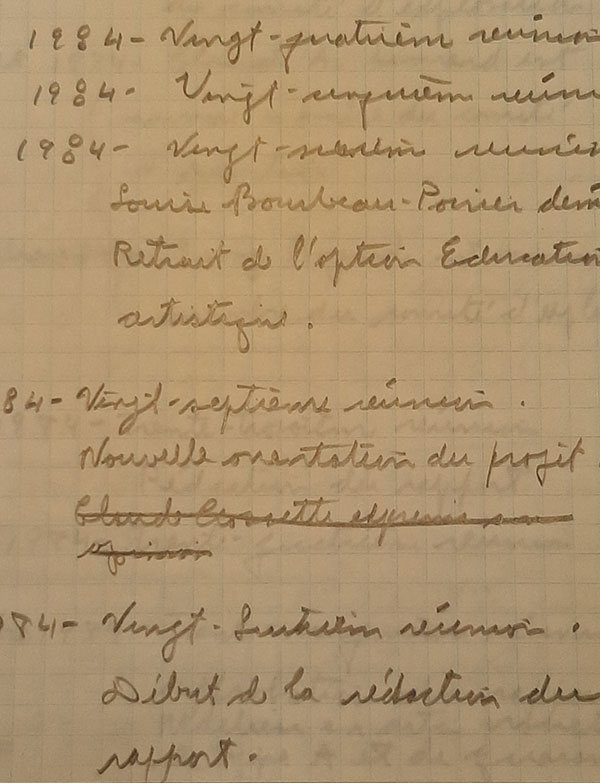 1984 - Vingt-quatrième réunion
1984 - Vingt-cinquième réun
1984 - Vingt-sixième réunion
Louise Bourbeau-Poirier dém
Retrait de l'option Education
artistique.
84 - Vingt-septième réunion.
Nouvelle orientation du projet.
Claude Cossette exprime son
opinion
984 - Vingt-huitième réunion.
Début de la rédaction du
rapport.